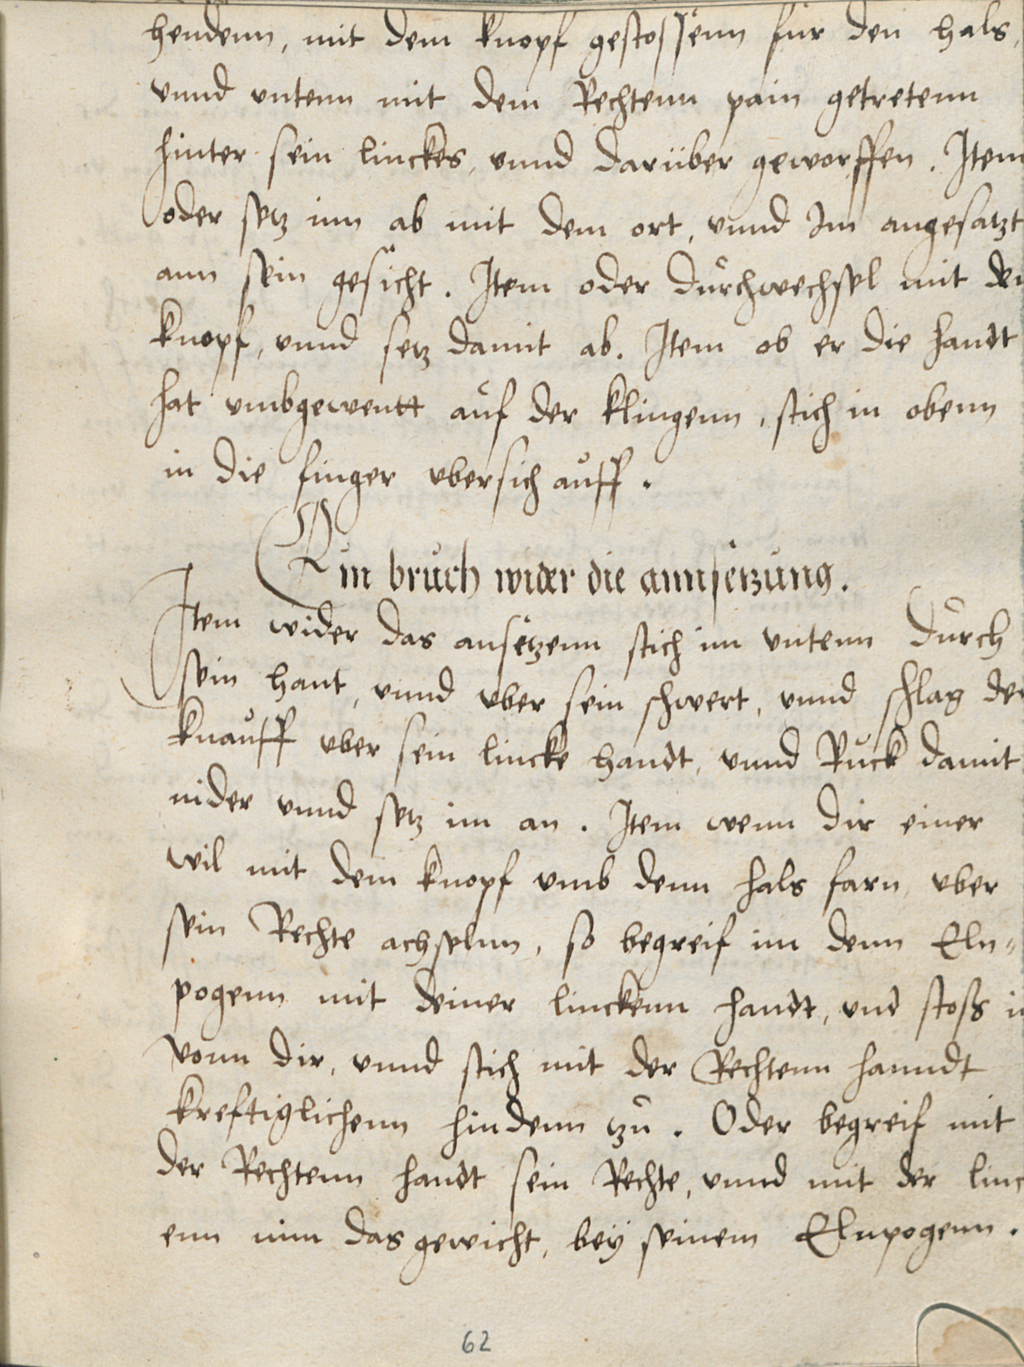 hendenn, mit dem knopf gestossenn für den hals,
vnnd vntenn mit dem Rechtenn pain getretenn
hinter sein linckes, vnnd darüber geworffen. Item
oder setz inn ab mit dem ort, vnnd Im angesatzt
ann sein gesicht. Item oder durchwechsel mit de
knopf, vnnd setz damit ab. Item ob er die handt
hat vmbgewentt auf der klingenn, stich in obenn
in die finger vbersich auff.
Ein bruch wider die annsetzung.
Item wider das ansetzenn stich im vntenn durch
sein hant, vnnd vber sein schwert, vnnd schlag de
knauff vber sein lincke handt, vnnd Ruck damit
nider vnnd setz im an. Item wenn dir einer
wil mit dem knopf vmb denn hals farn vber
sein Rechte achselnn, so begreif im denn Eln=
pogenn mit deiner linckenn handt, vnd stoss i
vonn dir, vnnd stich mit der Rechtenn hanndt
kreftiglichenn hindenn zu. Oder begreif mit
der Rechtenn handt sein Rechte, vnnd mit der linc
enn nim das gewicht, bey seinem Elnpogenn.
62